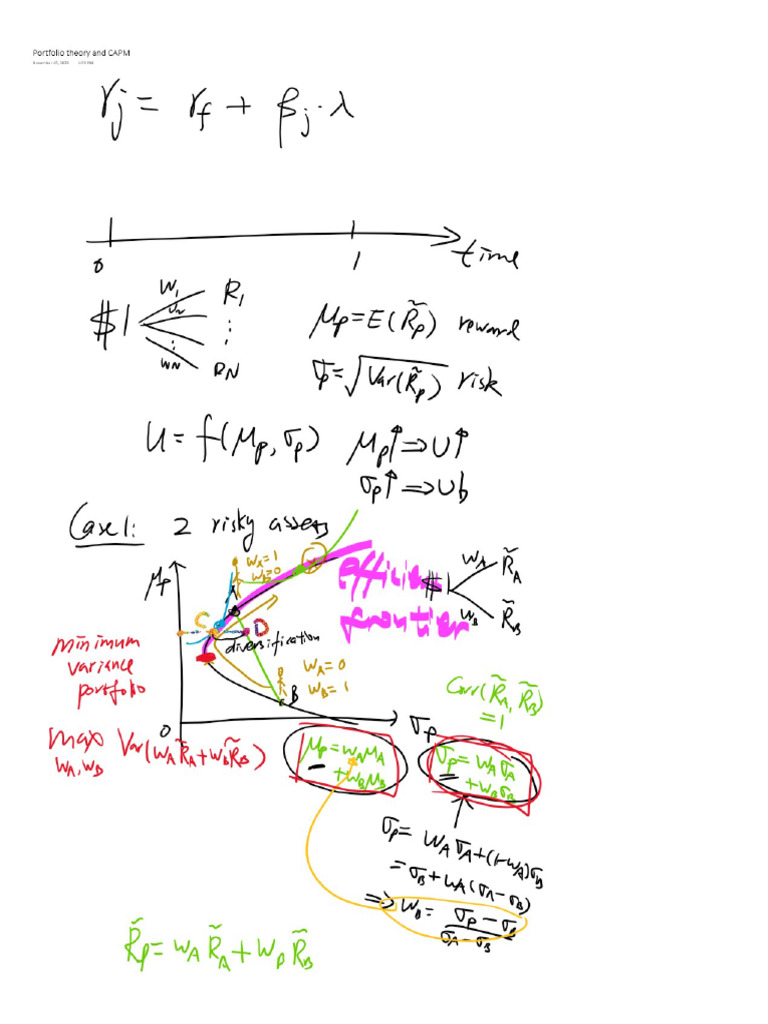 Portfolio theory and CAPM
r_j = r_f + β_j · λ
0 1 time
$1 w_1 R_1
w_2 ⋮
⋮
w_N R_N
μ_p = E(R̃_p) reward
σ_p = √Var(R̃_p) risk
U = f(μ_p, σ_p) μ_p↑ ⇒ U↑
σ_p↑ ⇒ U↓
Case 1: 2 risky assets
μ_p
w_A=1
w_B=0
A
C
D
diversification
efficient
frontier
$1 w_A R̃_A
w_B R̃_B
minimum
variance
portfolio
w_A=0
w_B=1
B
Corr(R̃_A, R̃_B)
=1
0
σ_p
max Var(w_A R̃_A + w_B R̃_B)
w_A, w_B
μ_p = w_A μ_A
+ w_B μ_B
σ_p = w_A σ_A
+ w_B σ_B
σ_p = w_A σ_A + (1-w_A) σ_B
= σ_B + w_A (σ_A - σ_B)
⇒ w_B = (σ_p - σ_B) / (σ_A - σ_B)
R̃_p = w_A R̃_A + w_p R̃_B